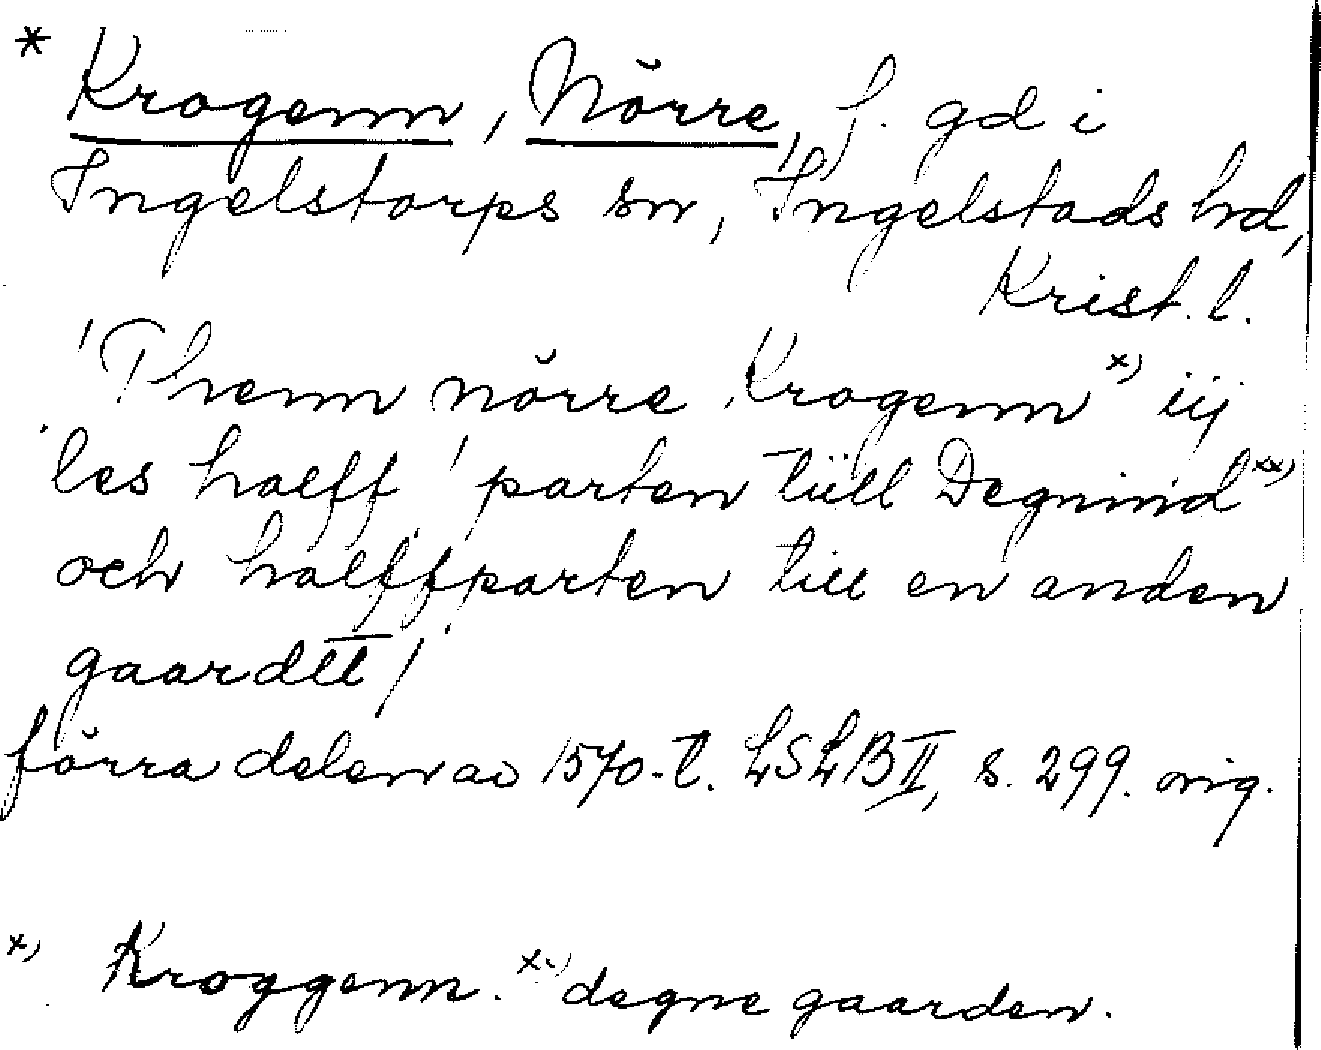 * Krogenn, Nörre, f. gd i
Ingelstorps sn, Ingelstads hd,
Krist. l.
'Thenn nörre Krogenn x) iij
les halff' parten tiill Degnind xx)
och halffparten till en anden
gaardtt'
förra delen av 1570-t. LSLB II, s. 299. orig.
x) Kroggenn. xx) degne gaarden.